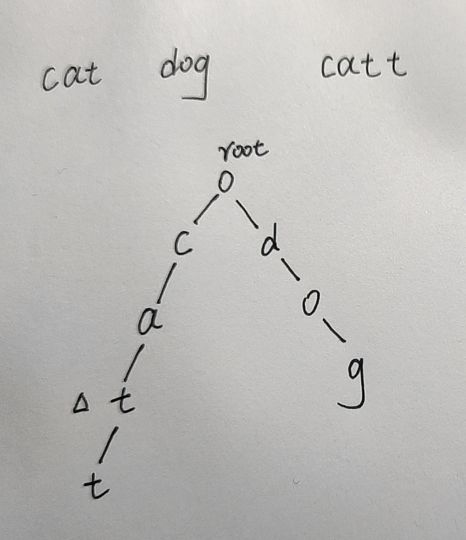 cat dog catt
root
O
c d
a o
Δ t g
t